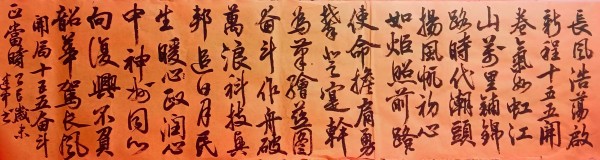 長風浩蕩啟
新程十五五開
卷氣如虹江
山萬里鋪錦
路時代潮頭
揚風帆初心
如炬照前路
使命擔肩勇
攀登實幹
為筆繪藍圖
奋斗作舟破
萬浪科技興
邦追日月民
生暖心政潤心
中神州同心
向復興不負
韶華駕長風
開局十五五奋斗
正當時乙巳歲末
建平書